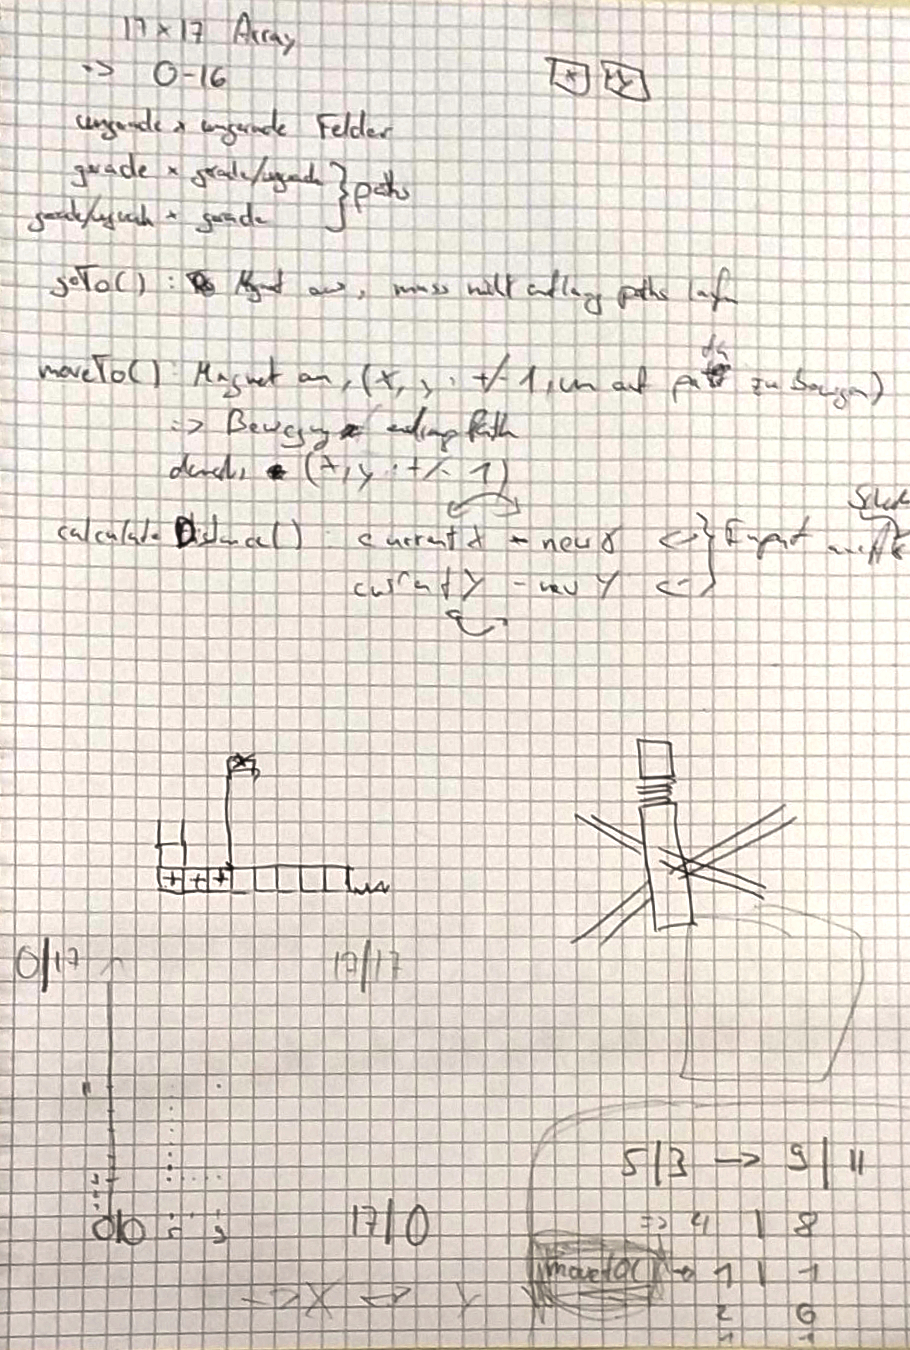 17 x 17 Array
=> 0-16
x y
ungerade x ungerade Felder
gerade x grade/ungrade } paths
grade/ungrade x gerade
goTo() : Magnet aus, muss nicht entlang paths laufen
moveTo() : Magnet an, (x, y : +/- 1, um auf path zu )
=> Bewegung entlang Path
danach (x, y : +/- 1)
calculateDistance() : currentX - newX <- } Input
currentY - newY <-
+ + +
0/17 17/17
11
0/0 5 9 17/0
5|3 -> 9|11
=> 4 | 8
moveTo() -> 1 | 1
2 6
1 1
X <-> Y